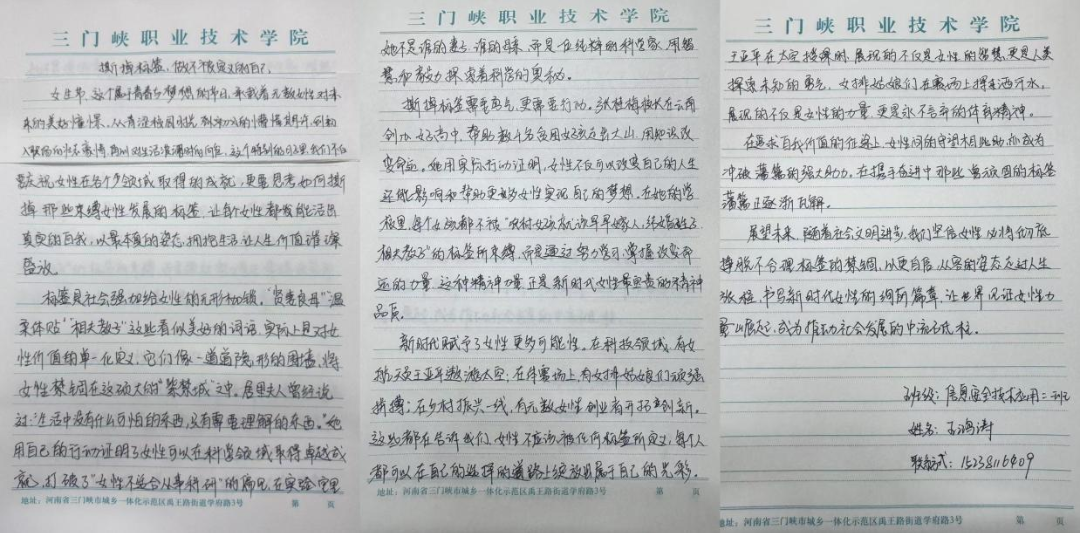 三门峡职业技术学院
撕掉标签，做不被定义的自己
女生节，这个属于青春与梦想的节日，承载着无数女性对未
来的美好憧憬。从青涩校园时光
入职场的
歌祝女性在各个领域取得的成就，更要思考如何撕
掉那些束缚女性发展的标签，让每个女性都能活出
真实的自我，以最本真的姿态，拥抱生活让人生价值
标签是社会强加给女性的无形枷锁。"贤妻良母""温
柔体贴""相夫教子"这些看似美好的词语，实际上是对女
性价值的单一化定义，它们像一道道隐形的围墙，将
女性禁锢在这硕大的"紫禁城"之中。居里夫人曾经说
过："生活中没有什么可怕的东西，只有需要理解的东西。"她
用自己的行动证明了女性可以在科学领域取得卓越成
就，打破了"女性不适合从事科研"的偏见，在实验室里
地址：河南省三门峡市城乡一体化示范区禹王路街道学府路3号 第 页
三门峡职业技术学院
她不是谁的妻子，谁的母亲，而是一位纯粹的科学家，用智
慧和毅力探索着科学的奥秘。
撕掉标签需要勇气，更需要行动。张桂梅校长在云南
创办女子高中，帮助数千名贫困女孩走出大山，用知识改
变命运。她用实际行动证明，女性不仅可以改变自己的人生
还能影响和帮助更多女性实现自己的梦想。在她的学
校里，每个女孩都不被"农村女孩就该早早嫁人，结婚生子
相夫教子"的标签所束缚，而是通过努力学习，掌握改变命
运的力量，这种精神力量正是新时代女性最宝贵的精神
品质。
新时代赋予了女性更多可能性。在科技领域，有女
航天员王亚平遨游太空；在体育场上，有女排姑娘们顽强
拼搏；在乡村振兴一线，有无数女性创业者开拓创新。
这些都在告诉我们，女性不应该被任何标签所定义，每个人
都可以在自己的选择的道路上绽放出属于自己的光彩。
地址：河南省三门峡市城乡一体化示范区禹王路街道学府路3号 第 页
三门峡职业技术学院
王亚平在太空授课时，展现的不仅是女性的智慧，更是人类
探索未知的勇气，女排姑娘们在赛场上挥洒汗水，
展现的不仅是女性的力量，更是永不言弃的体育精神。
在追求自我价值的征途上，女性间的守望相助，亦成为
冲破藩篱的强大助力。在携手奋进中那些曾顽固的标签
藩篱正逐渐瓦解。
展望未来，随着社会文明进步，我们坚信女性必将彻底
挣脱不合理标签的禁锢，以更自信、从容的姿态走过人生
旅程，书写新时代女性的绚丽篇章，让世界见证女性力
量崛起，成为推动社会发展的中流砥柱。
班级：信息安全技术应用二班
姓名：王鸿涛
联系方式：15238116409
地址：河南省三门峡市城乡一体化示范区禹王路街道学府路3号 第 页